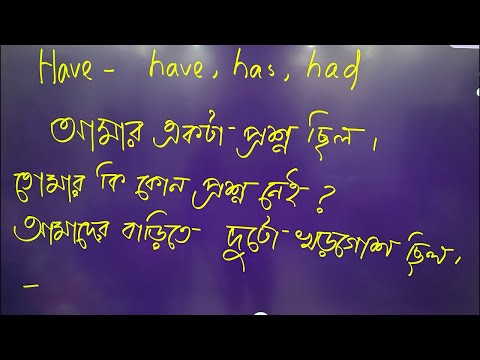 Have - have, has, had
আমার একটা প্রশ্ন ছিল।
তোমার কি কোন প্রশ্ন নেই?
আমাদের বাড়িতে দুটো খড়গোশ ছিল।
-